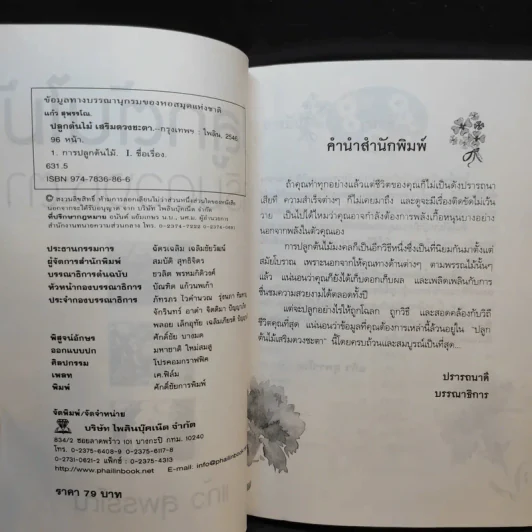 ข้อมูลทางบรรณานุกรมของหอสมุดแห่งชาติ
แก้ว สุพรรโณ.
ปลูกต้นไม้ เสริมดวงชะตา.--กรุงเทพฯ : ไพลิน, 2546.
96 หน้า.
1. การปลูกต้นไม้. I. ชื่อเรื่อง.
631.5
ISBN 974-7836-86-6
© สงวนลิขสิทธิ์
ที่ปรึกษากฎหมาย
โทร. 0-2374-7222
ประธานกรรมการ ฉัตรเฉลิม เฉลิมชัยวัฒน์
ผู้จัดการสำนักพิมพ์ สมบัติ สุทธิจิตร
บรรณาธิการต้นฉบับ ธวลิต พรหมกิติวงศ์
หัวหน้ากองบรรณาธิการ บัณฑิต แก้วนพเก้า
ประจำกองบรรณาธิการ ภัทรภร ไวคำนวณ
จักรินทร์ อาดำ
พลอย เล็กอุทัย
พิสูจน์อักษร ศักดิ์ชัย บางมด
ออกแบบปก มหาชาติ ใหม่สมฮู
ศิลปกรรม โปรคอมกราฟฟิค
เพลท เค.ฟิล์ม
พิมพ์ ศักดิ์ชัยการพิมพ์
จัดพิมพ์/จัดจำหน่าย
บริษัท ไพลินบุ๊คเน็ต จำกัด
834/2 ซอยลาดพร้าว 101 บางกะปิ กทม. 10240
โทร. 0-2375-6408-9 0-2375-6117-8
0-2731-0821-2 แฟ็กซ์ : 0-2375-4313
http://www.phailinbook.net E-mail: info@phailinbook.net
ราคา 79 บาท
คำนำสำนักพิมพ์
ถ้าคุณทำทุกอย่างแล้วแต่ชีวิตของคุณก็ไม่เป็นดังปรารถนา
เสียที ความสำเร็จต่างๆ ก็ไม่เคยมาถึง และดูจะมีเรื่องติดขัดไม่เว้น
วาย เป็นไปได้ไหมว่าคุณอาจกำลังต้องการพลังเกื้อหนุนบางอย่าง
นอกจากพลังในตัวคุณเอง
การปลูกต้นไม้มงคลก็เป็นอีกวิธีหนึ่งซึ่งเป็นที่นิยมกันมาตั้งแต่
สมัยโบราณ เพราะนอกจากให้คุณทางด้านต่างๆ ตามพรรณไม้นั้นๆ
แล้ว แน่นอนว่าคุณก็ยังได้เก็บดอกเก็บผล และเพลิดเพลินกับการ
ชื่นชมความสวยงามได้ตลอดทั้งปี
แต่จะปลูกอย่างไรให้ถูกโฉลก ถูกวิธี และสอดคล้องกับวิถี
ชีวิตคุณที่สุด แน่นอนว่าข้อมูลที่คุณต้องการเหล่านี้ล้วนอยู่ใน "ปลูก
ต้นไม้เสริมดวงชะตา" นี้โดยครบถ้วนและสมบูรณ์เป็นที่สุด...
ปรารถนาดี
บรรณาธิการ